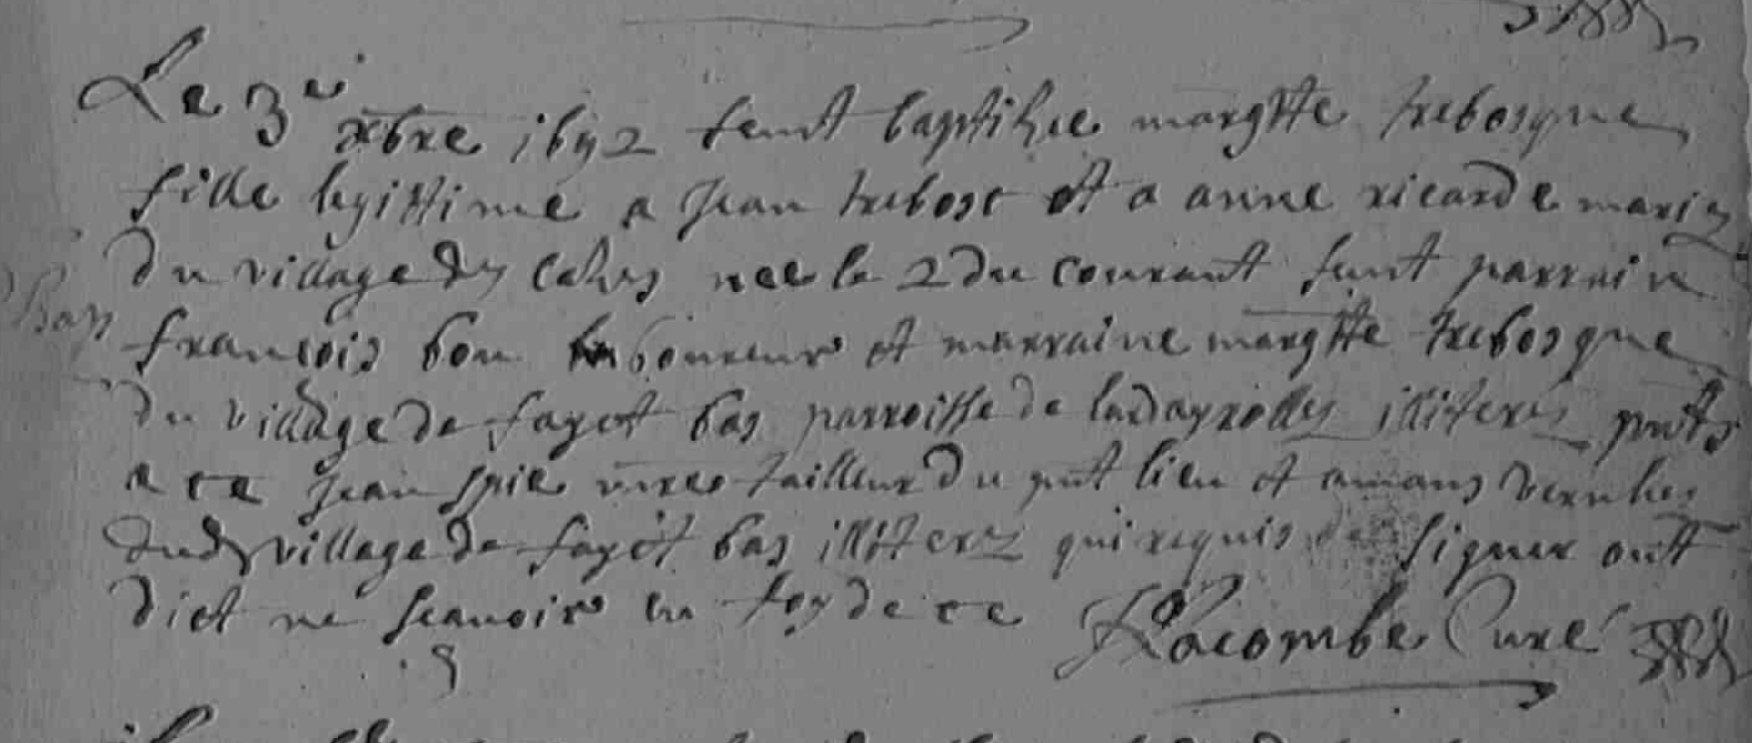 Le 3e xbre 1692 feut baptisée margtte trebosque
fille legittime a Jean trebosc et a anne ricarde mariez
du village des cahus nee le 2 du courant feut parrain
francois bou laboureur et marraine margtte trebosque
du village de fayet bas parroisse de ladayrolles illiteres pnts
a ce Jean spie tailleur du pnt lieu et amans vernhes
dud village de fayet bas illiterez qui requis de signer ont
dict ne scauoir en foy de ce Lacombe Curé